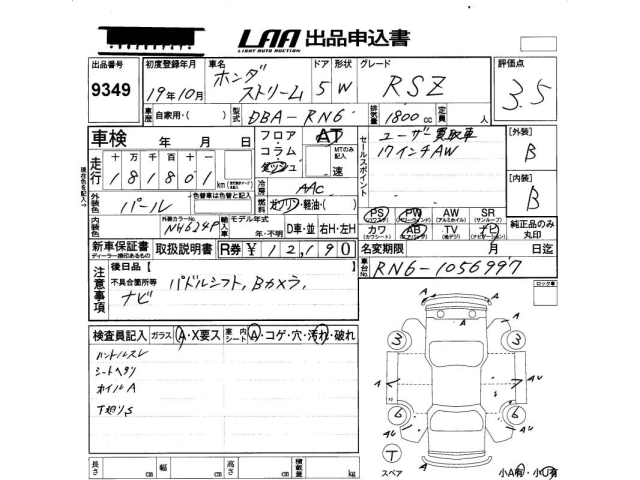 LAA 出品申込書
LIGHT AUTO AUCTION
出品番号 9349
初度登録年月 19年10月
車名 ホンダ ストリーム
ドア 5 形状 W
グレード RSZ
評価点 3.5
車歴 自家用・( )
型式 DBA-RN6
排気量 1800 cc
定員 人
車検 年 月 日
フロア・コラム・ダッシュ
AT
MTのみ記入 速
セールスポイント
ユーザー買取車
17インチAW
[外装] B
[内装] B
走行 十万千百十一
181801 km
冷房 AAC
外装色 パール
色替車は色替と記入
燃料 ガソリン・軽油・( )
PS PW AW SR
カワ AB TV ナビ
純正品のみ丸印
内装色
外装カラーNo. NH624P
輸入車 モデル年式 年・不明 D車・並 右H・左H
新車保証書
ディーラー捺印あるもの
取扱説明書
R券 ¥ 12,190
名変期限 月 日迄
車台No. RN6-1056997
注意事項
後日品【
不具合箇所等 パドルシフト, Bカメラ,
ナビ
ロック車
検査員記入 ガラス A・X要ス
車内シート A・コゲ・穴・汚れ・破れ
ハンドルスレ
シートヘタリ
ホイルA
下廻りS
3 3
A 1 AU
6 6
AU
T
スペア
小A有・小U有
長さ cm 幅 cm 高さ cm 積載量 kg